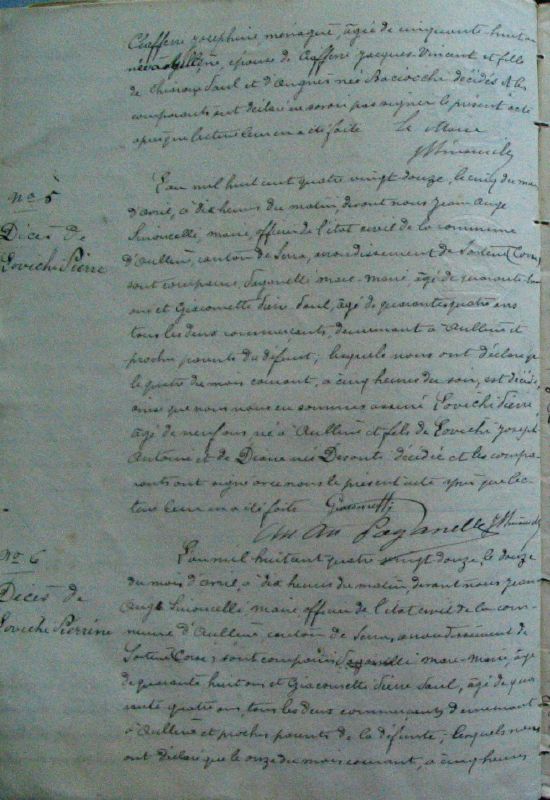 Chiaffieri Josephine ménagère, âgée de cinquante-huit an
née à Aullène, épouse de Chiaffieri Jacques Vincent et fille
de Paul et d'Angnès née décédés et les
comparants ont déclaré ne savoir pas signer le présent acte
après que lecture leur en a été faite Le Maire
JSimoncelli
No 5
Décès de
Lovichi Pierre
L'an mil huit cent quatre vingt douze, le cinq du mois
d'avril, à dix heures du matin, devant nous Jean Ange
Simoncelli, maire, officier de l'état civil de la commune
d'Aullène, canton de Serra, arrondissement de Sartène (Corse)
sont comparus, Paganelli Marc-Marie, âgé de quarante-huit
ans et Giacometti Pierre Paul, âgé de quarante quatre ans
tous les deux commerçants, demeurant à Aullène et
proches parents du défunt, lesquels nous ont déclaré que
le quatre du mois courant, à cinq heures du soir, est décédé,
ainsi que nous nous en sommes assuré Lovichi Pierre,
âgé de neuf ans, né à Aullène et fils de Lovichi Joseph
Antoine et de Diane née décédée et les compa-
rants ont signé avec nous le présent acte après que lec-
ture leur en a été faite Giacometti
Paganelli JSimoncelli
No 6
Décès de
Lovichi Pierrine
L'an mil huit cent quatre vingt douze, le douze
du mois d'avril, à dix heures du matin, devant nous Jean
Ange Simoncelli maire officier de l'état civil de la com-
mune d'Aullène, canton de Serra, arrondissement de
Sartène (Corse), sont comparus Paganelli Marc-Marie, âgé
de quarante huit ans et Giacometti Pierre Paul, âgé de qua-
rante quatre ans, tous les deux commerçants demeurant
à Aullène et proches parents de la défunte, lesquels nous
ont déclaré que le onze du mois courant, à cinq heures